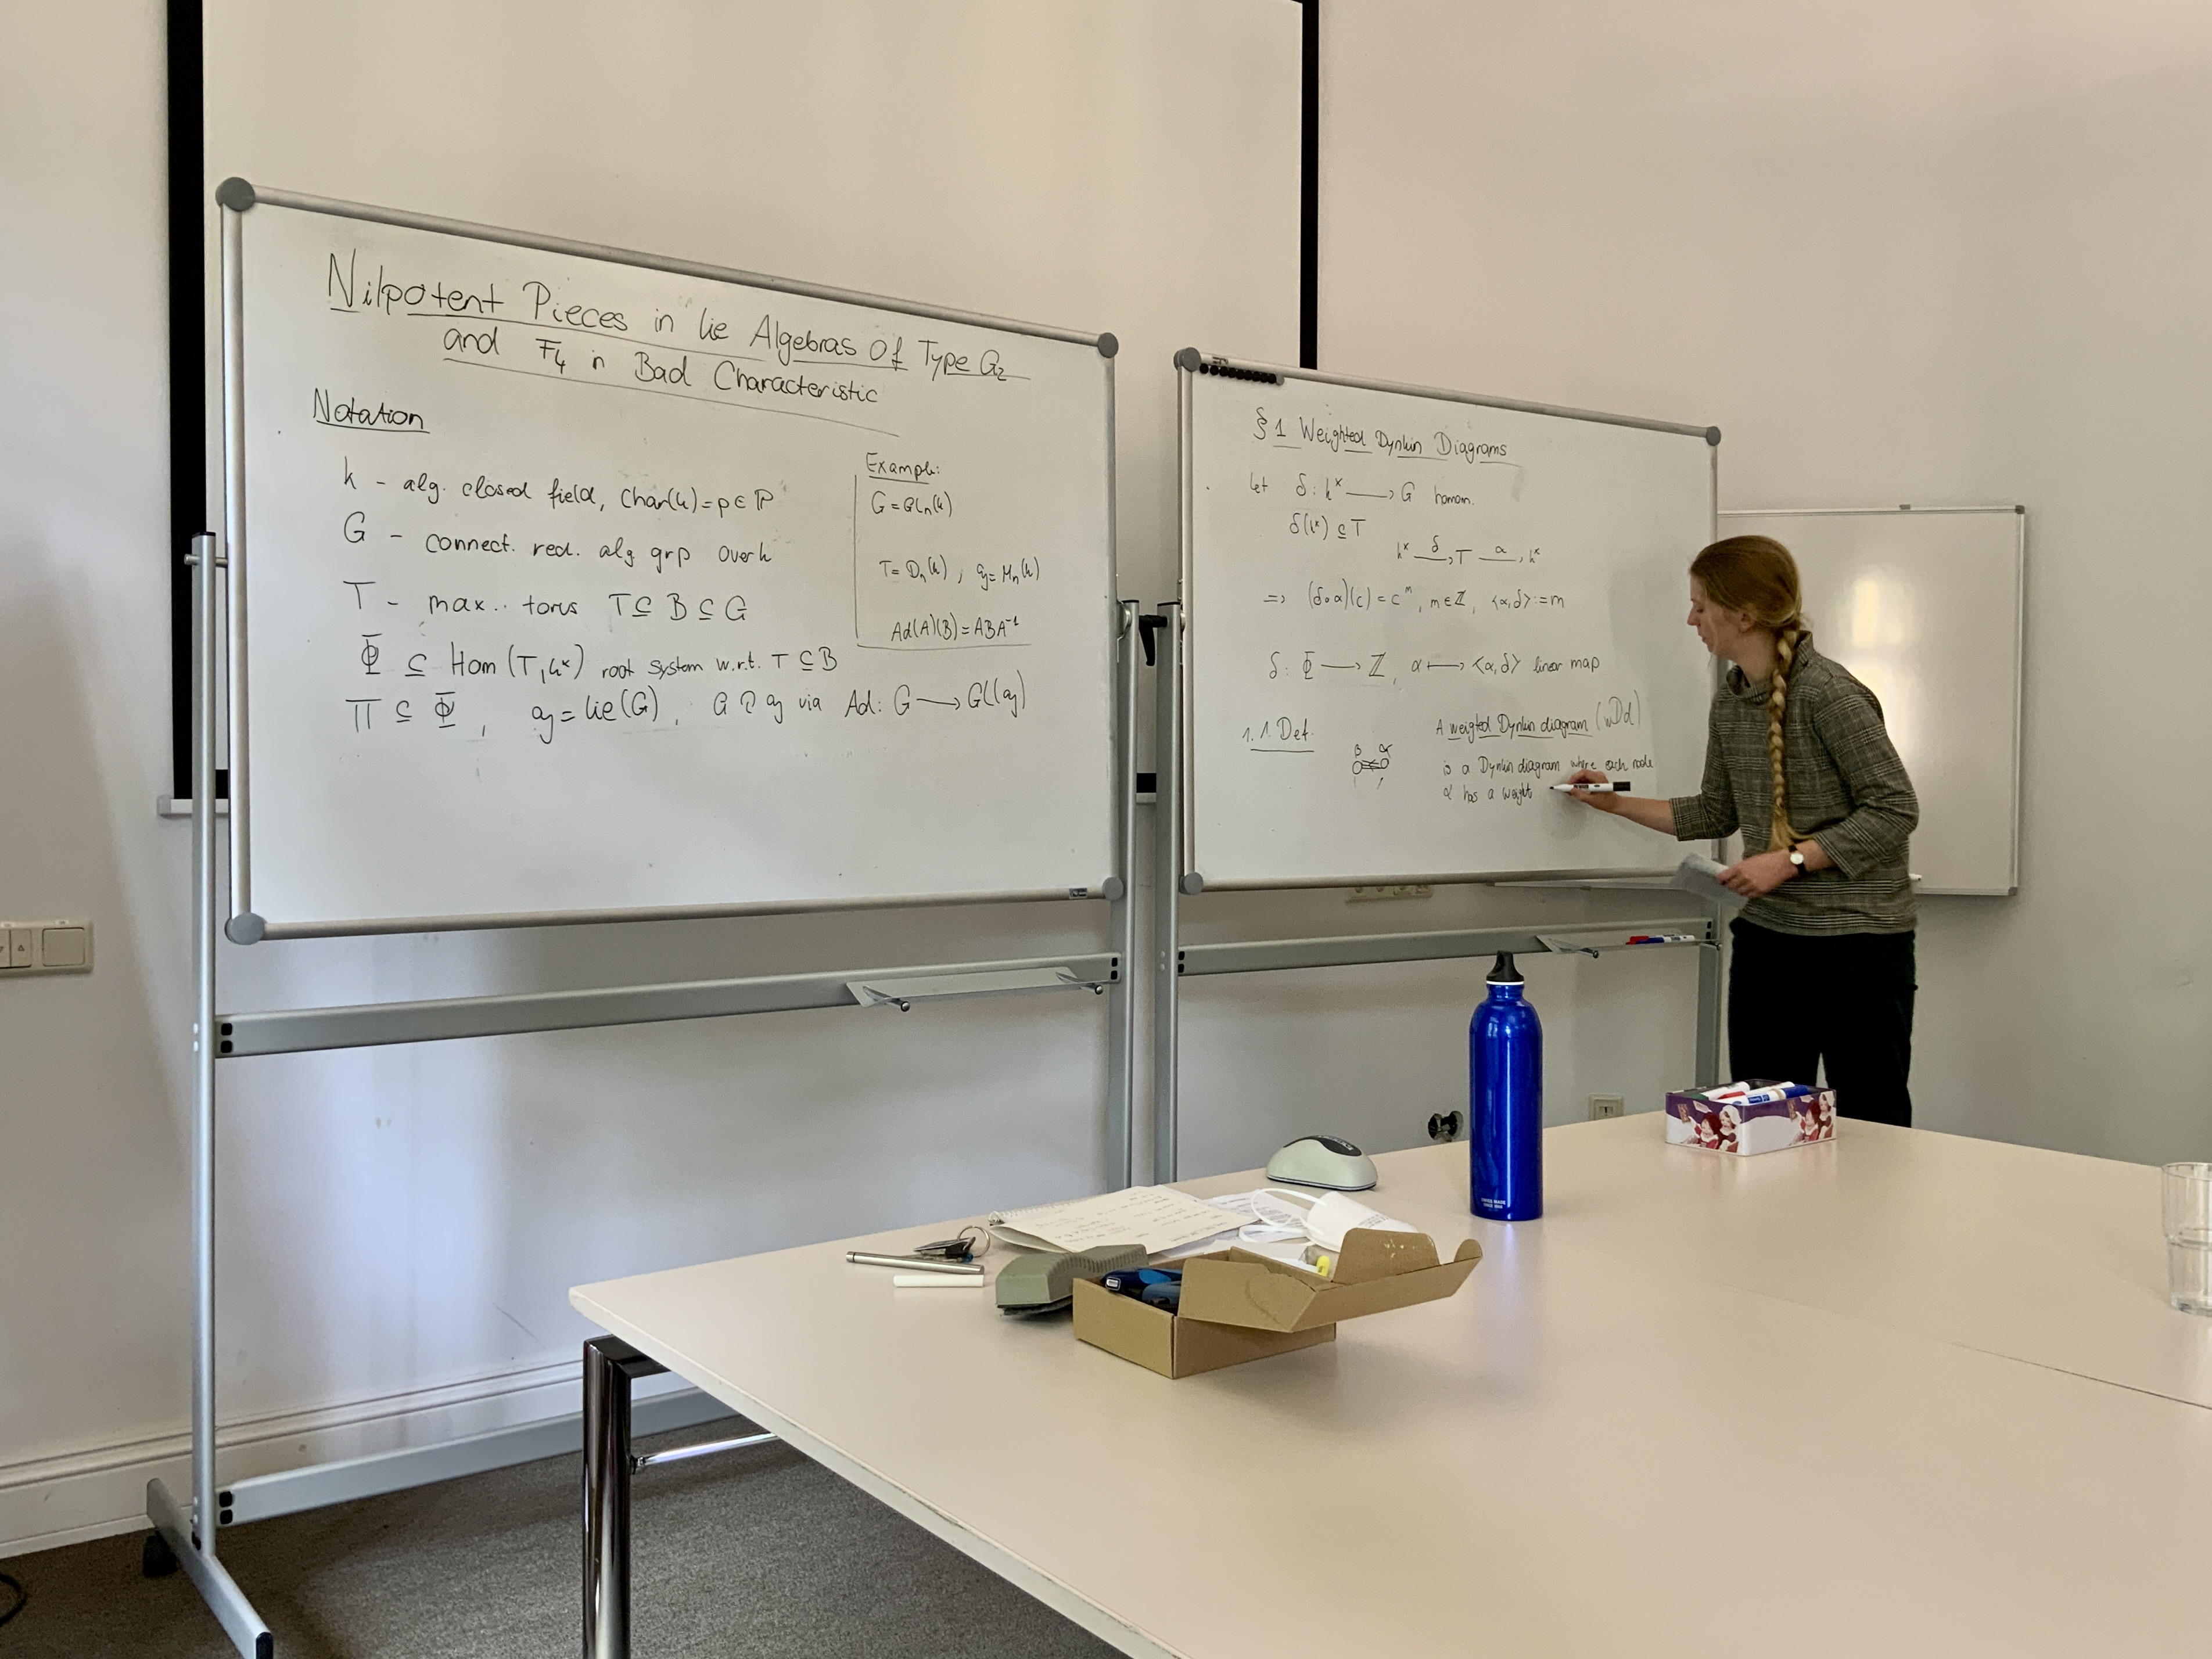 Nilpotent Pieces in Lie Algebras Of Type G₂
and F₄ in Bad Characteristic
Notation
k - alg. closed field, Char(k)=p∈ℙ
G - connect. red. alg grp over k
T - max. torus T⊆B⊆G
Φ ⊆ Hom(T,kˣ) root system w.r.t. T⊆B
Π ⊆ Φ, 𝔤=Lie(G), G ↻ 𝔤 via Ad: G ⟶ GL(𝔤)
Example:
G=GLₙ(k)
T=Dₙ(k), 𝔤=Mₙ(k)
Ad(A)(B)=ABA⁻¹
§1 Weighted Dynkin Diagrams
Let δ: kˣ ⟶ G homom.
δ(kˣ)⊆T
kˣ —δ→ T —α→ kˣ
=> (δ∘α)(c)=cᵐ, m∈ℤ, <α,δ>:=m
δ: Φ ⟶ ℤ, α ⟼ <α,δ> linear map
1.1 Def.
β α
A weigted Dynkin diagram (wDd)
is a Dynkin diagram where each node
α has a weight